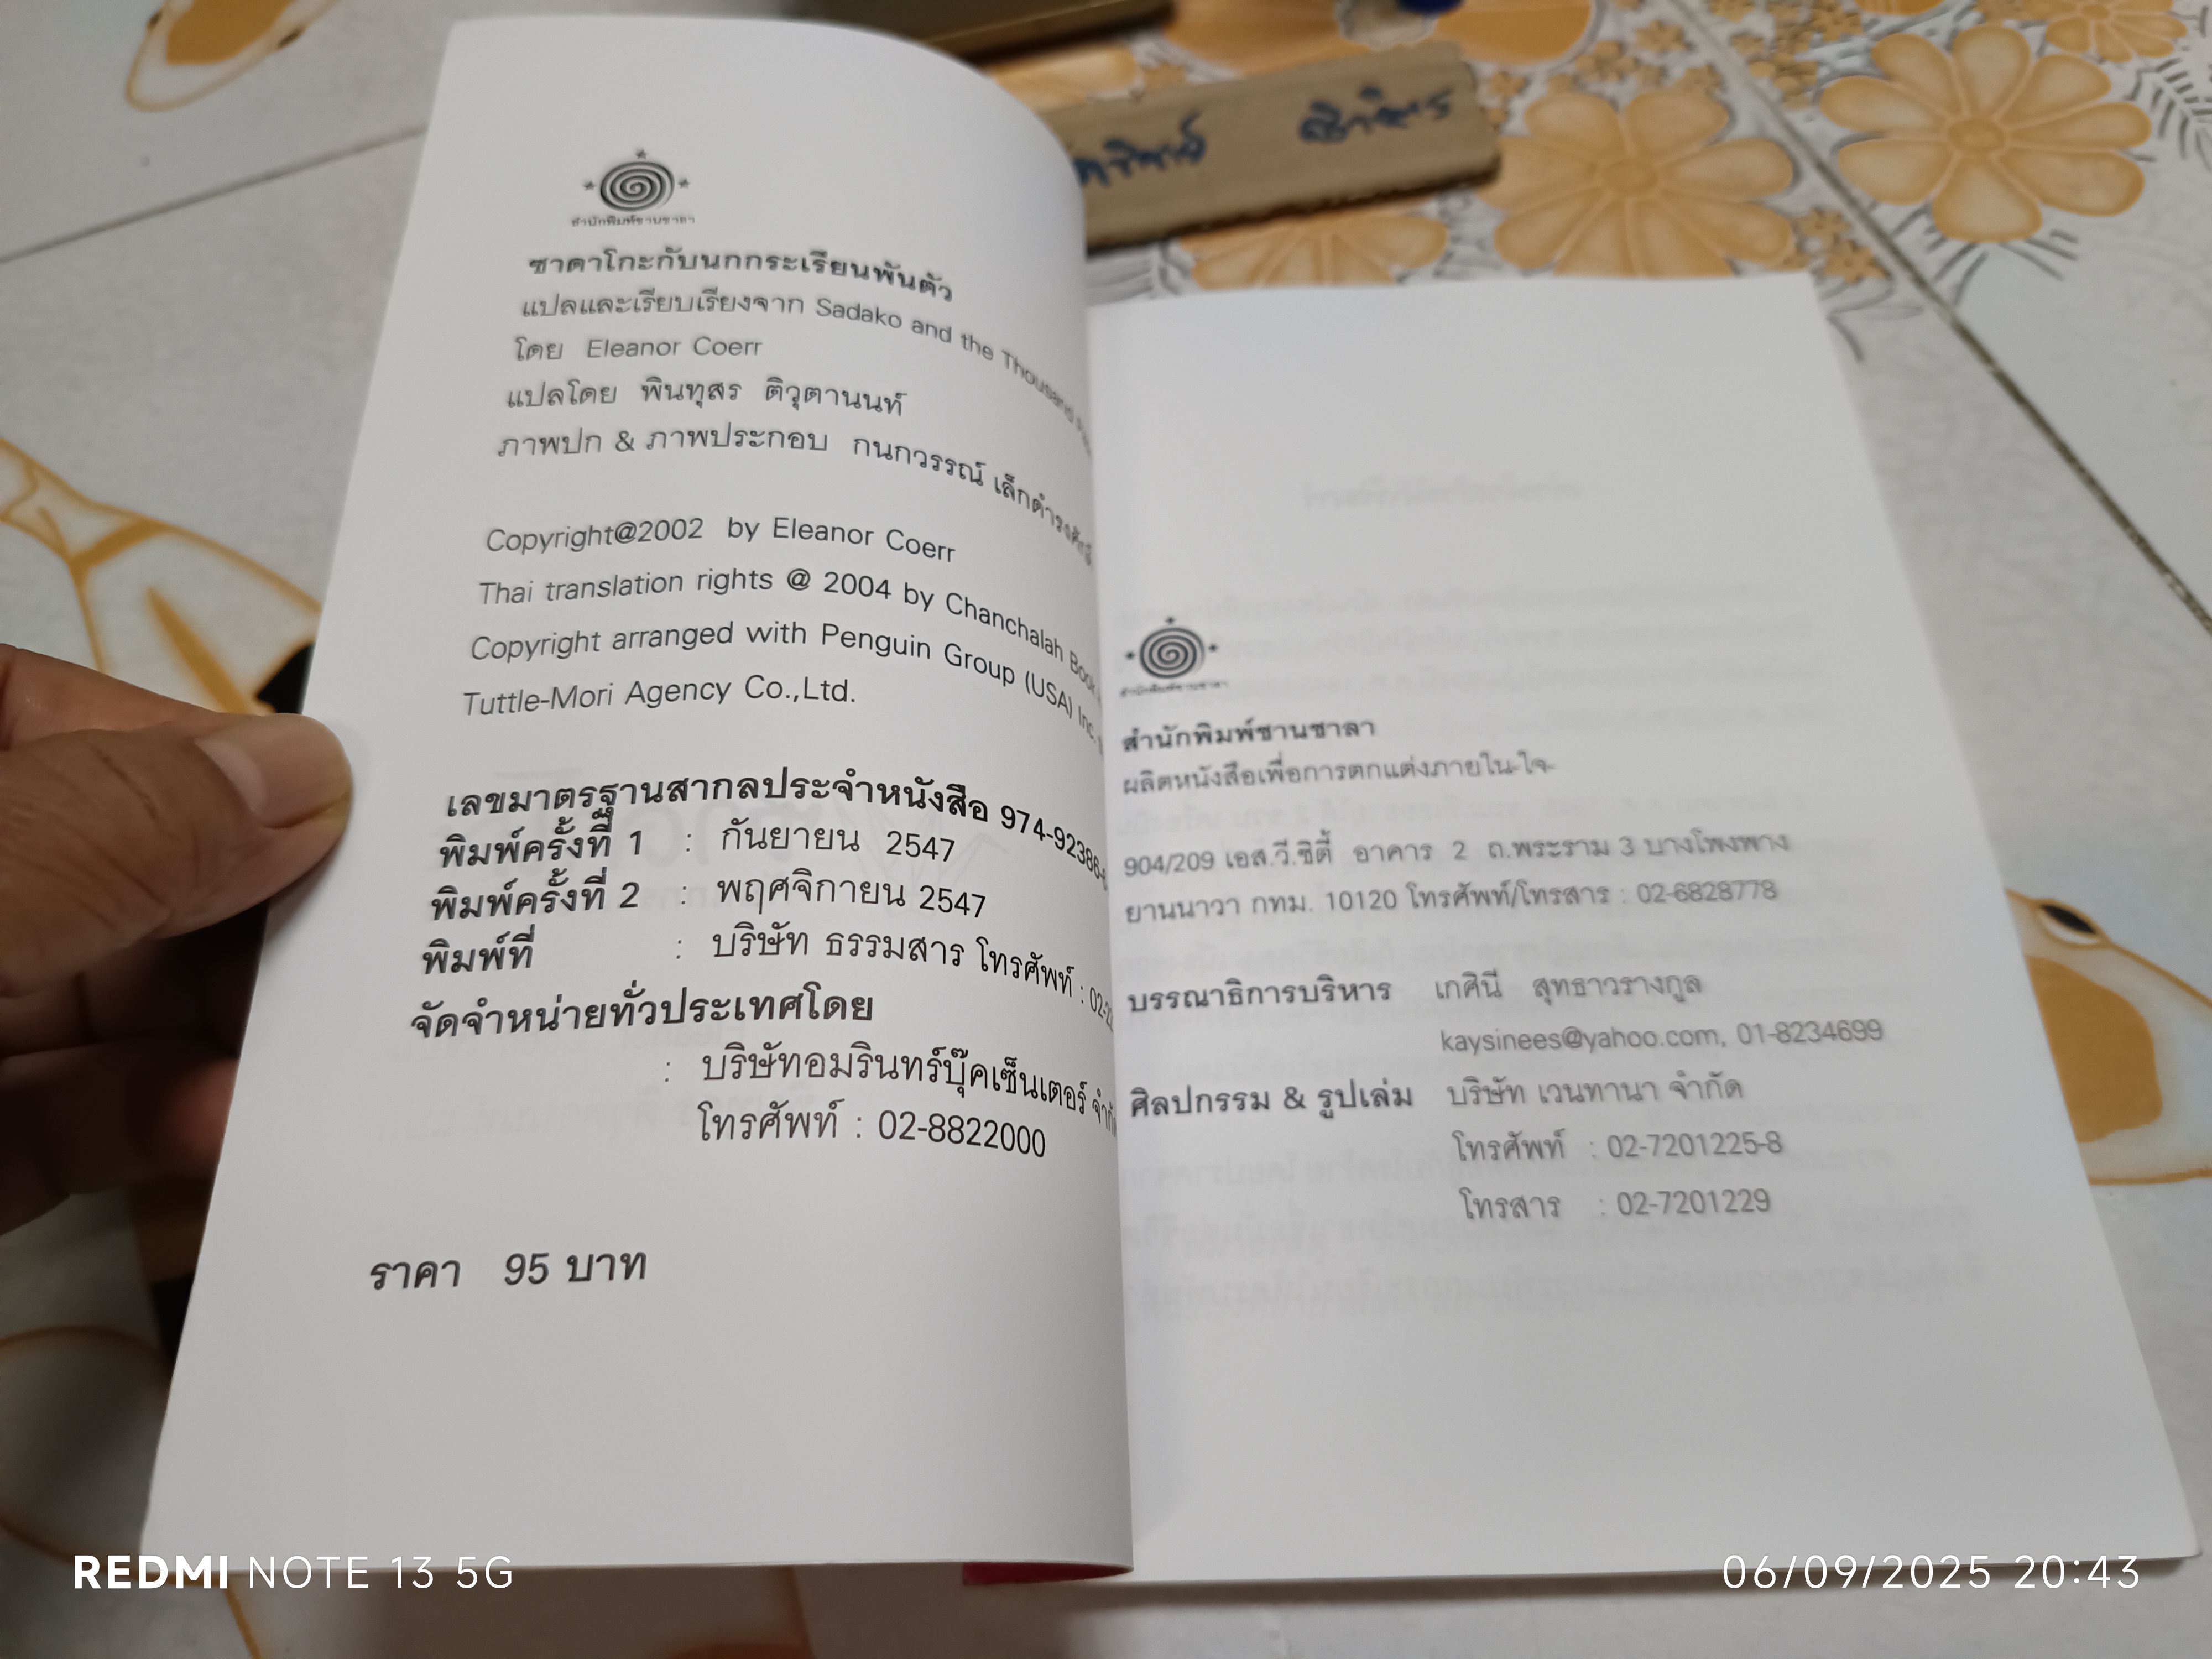 สำนักพิมพ์ชานชาลา
ซาดาโกะกับนกกระเรียนพันตัว
แปลและเรียบเรียงจาก Sadako and the Thousand
โดย Eleanor Coerr
แปลโดย พินทุสร ติวุตานนท์
ภาพปก & ภาพประกอบ กนกวรรณ์ เล็กดำรงศักดิ์
Copyright@2002 by Eleanor Coerr
Thai translation rights @ 2004 by Chanchalah Book
Copyright arranged with Penguin Group (USA) Inc.
Tuttle-Mori Agency Co.,Ltd.
เลขมาตรฐานสากลประจำหนังสือ 974-92386-
พิมพ์ครั้งที่ 1 : กันยายน 2547
พิมพ์ครั้งที่ 2 : พฤศจิกายน 2547
พิมพ์ที่ : บริษัท ธรรมสาร โทรศัพท์ : 02-2
จัดจำหน่ายทั่วประเทศโดย
: บริษัทอมรินทร์บุ๊คเซ็นเตอร์ จำกั
โทรศัพท์ : 02-8822000
ราคา 95 บาท
สำนักพิมพ์ชานชาลา
สำนักพิมพ์ชานชาลา
ผลิตหนังสือเพื่อการตกแต่งภายใน-ใจ-
904/209 เอส.วี.ซิตี้ อาคาร 2 ถ.พระราม 3 บางโพงพาง
ยานนาวา กทม. 10120 โทรศัพท์/โทรสาร : 02-6828778
บรรณาธิการบริหาร เกศินี สุทธาวรางกูล
kaysinees@yahoo.com, 01-8234699
ศิลปกรรม & รูปเล่ม บริษัท เวนทานา จำกัด
โทรศัพท์ : 02-7201225-8
โทรสาร : 02-7201229
REDMI NOTE 13 5G
06/09/2025 20:43